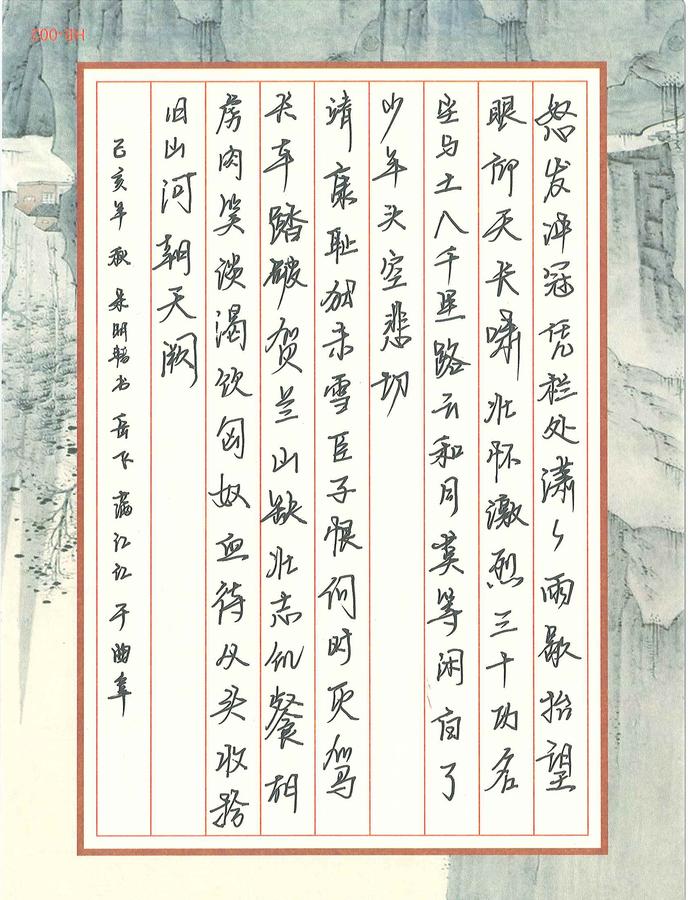 HB-002
怒发冲冠凭栏处潇々雨歇抬望
眼仰天长啸壮怀激烈三十功名
尘与土八千里路云和月莫等闲白了
少年头空悲切
靖康耻犹未雪臣子恨何时灭驾
长车踏破贺兰山缺壮志饥餐胡
虏肉笑谈渴饮匈奴血待从头收拾
旧山河朝天阙
己亥年秋朱明书岳飞满江红于曲阜